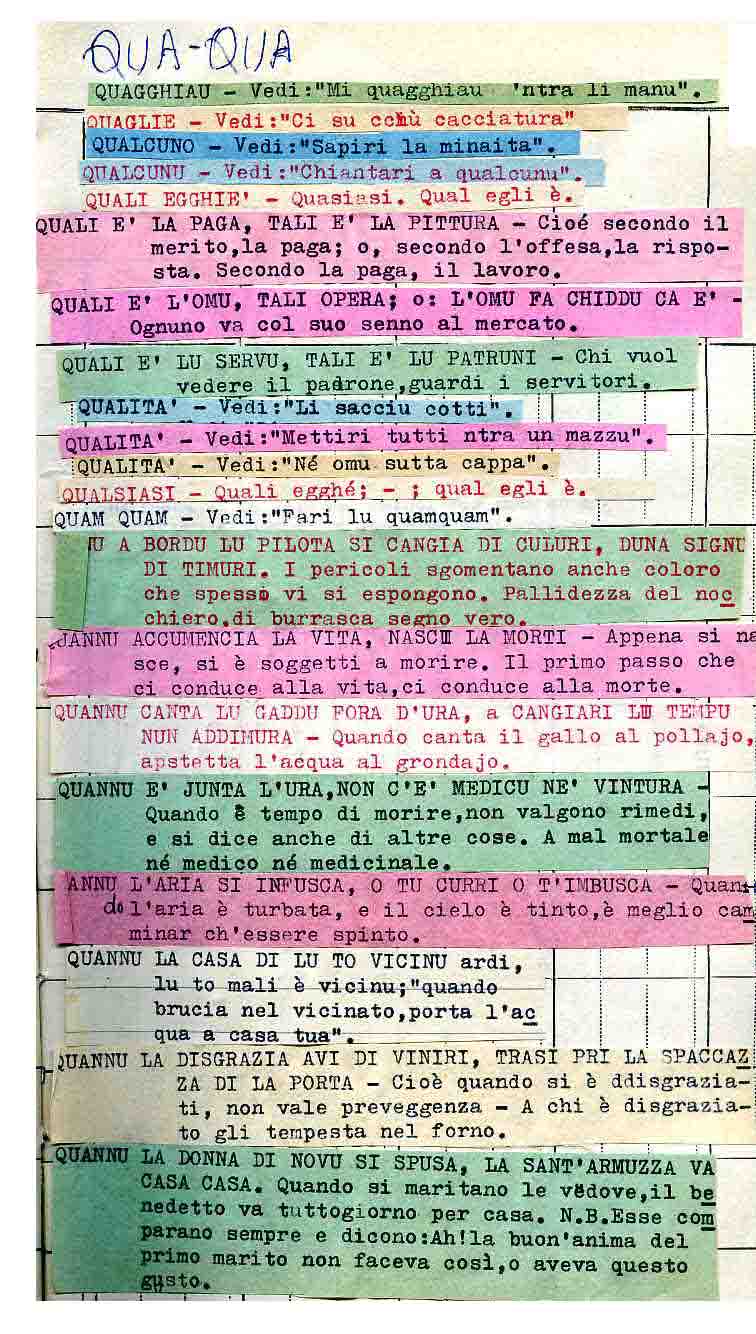 QUA-QUA
QUAGGHIAU - Vedi:"Mi quagghiau 'ntra li manu".
QUAGLIE - Vedi:"Ci su cchù cacciatura"
QUALCUNO - Vedi:"Sapiri la minaita".
QUALCUNU - Vedi:"Chiantari a qualcunu".
QUALI EGGHIE' - Quasiasi. Qual egli è.
QUALI E' LA PAGA, TALI E' LA PITTURA - Cioé secondo il
merito,la paga; o, secondo l'offesa,la rispo-
sta. Secondo la paga, il lavoro.
QUALI E' L'OMU, TALI OPERA; o: L'OMU FA CHIDDU CA E' -
Ognuno va col suo senno al mercato.
QUALI E' LU SERVU, TALI E' LU PATRUNI - Chi vuol
vedere il padrone,guardi i servitori.
QUALITA' - Vedi:"Li sacciu cotti".
QUALITA' - Vedi:"Mettiri tutti ntra un mazzu".
QUALITA' - Vedi:"Né omu sutta cappa".
QUALSIASI - Quali egghé; - ; qual egli è.
QUAM QUAM - Vedi:"Fari lu quamquam".
U A BORDU LU PILOTA SI CANGIA DI CULURI, DUNA SIGNU
DI TIMURI. I pericoli sgomentano anche coloro
che spesso vi si espongono. Pallidezza del noc
chiero,di burrasca segno vero.
UANNU ACCUMENCIA LA VITA, NASCI LA MORTI - Appena si na
sce, si è soggetti a morire. Il primo passo che
ci conduce alla vita,ci conduce alla morte.
QUANNU CANTA LU GADDU FORA D'URA, a CANGIARI LU TEMPU
NUN ADDIMURA - Quando canta il gallo al pollajo,
apstetta l'acqua al grondajo.
QUANNU E' JUNTA L'URA,NON C'E' MEDICU NE' VINTURA -
Quando è tempo di morire,non valgono rimedi,
e si dice anche di altre cose. A mal mortale
né medico né medicinale.
ANNU L'ARIA SI INFUSCA, O TU CURRI O T'IMBUSCA - Quan-
do l'aria è turbata, e il cielo è tinto,è meglio cam
minar ch'essere spinto.
QUANNU LA CASA DI LU TO VICINU ardi,
lu to mali è vicinu;"quando
brucia nel vicinato,porta l'ac
qua a casa tua".
QUANNU LA DISGRAZIA AVI DI VINIRI, TRASI PRI LA SPACCAZ
ZA DI LA PORTA - Cioè quando si è ddisgrazia-
ti, non vale preveggenza - A chi è disgrazia-
to gli tempesta nel forno.
QUANNU LA DONNA DI NOVU SI SPUSA, LA SANT'ARMUZZA VA
CASA CASA. Quando si maritano le vedove,il be
nedetto va tuttogiorno per casa. N.B.Esse com
parano sempre e dicono:Ah!la buon'anima del
primo marito non faceva così,o aveva questo
gusto.